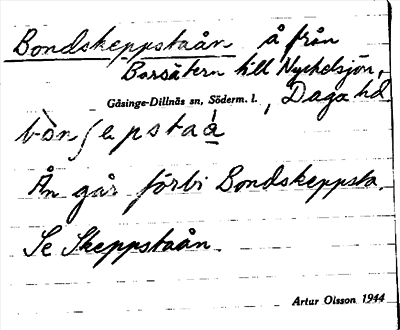 Bondskeppstaån å från
Borsätern till Nyckelsjön,
Gåsinge-Dillnäs sn, Söderm. l., Daga hd
Ån går förbi Bondskeppsta.
Se Skeppstaån.
Artur Olsson 1944